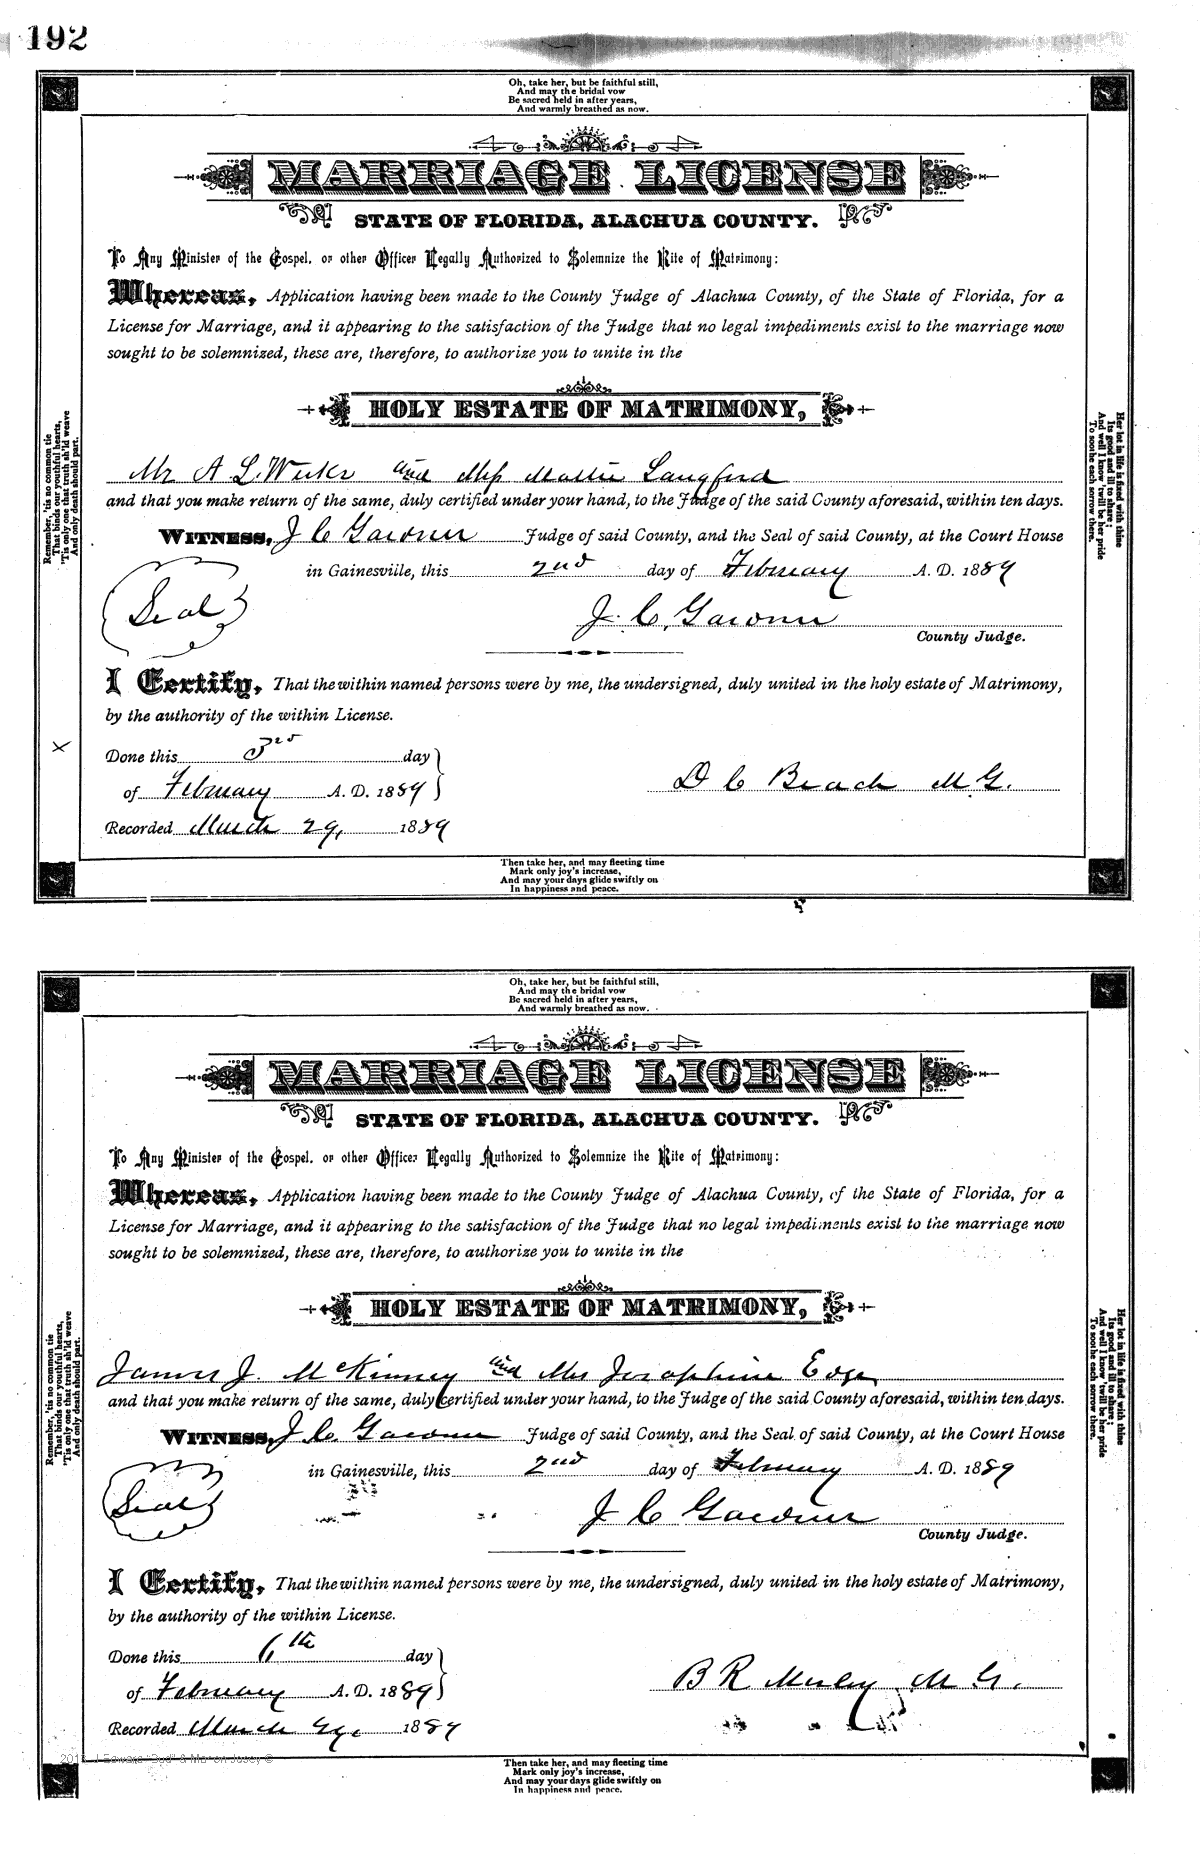 192
Oh, take her, but be faithful still,
And may the bridal vow
Be sacred held in after years,
And warmly breathed as now.
MARRIAGE LICENSE
STATE OF FLORIDA, ALACHUA COUNTY.
To Any Minister of the Gospel, or other Officer Legally Authorized to Solemnize the Rite of Matrimony:
Whereas, Application having been made to the County Judge of Alachua County, of the State of Florida, for a
License for Marriage, and it appearing to the satisfaction of the Judge that no legal impediments exist to the marriage now
sought to be solemnized, these are, therefore, to authorize you to unite in the
HOLY ESTATE OF MATRIMONY,
Mr A L. Weeks and Miss Mattie Langford
and that you make return of the same, duly certified under your hand, to the Judge of the said County aforesaid, within ten days.
WITNESS, J C Gardner Judge of said County, and the Seal of said County, at the Court House
in Gainesville, this 2nd day of February A. D. 1889
Seal
J. C. Gardner
County Judge.
I Certify, That the within named persons were by me, the undersigned, duly united in the holy estate of Matrimony,
by the authority of the within License.
Done this 3rd day
of February A. D. 1889
D C Beach M G.
Recorded March 29, 1889
X
Remember, 'tis no common tie
That binds our youthful hearts,
'Tis only one that truth sh'ld weave
And only death should part.
Her lot in life is fixed with thine
Its good and ill to share;
And well I know 'twill be her pride
To soothe each sorrow there.
Then take her, and may fleeting time
Mark only joy's increase,
And may your days glide swiftly on
In happiness and peace.
Oh, take her, but be faithful still,
And may the bridal vow
Be sacred held in after years,
And warmly breathed as now.
MARRIAGE LICENSE
STATE OF FLORIDA, ALACHUA COUNTY.
To Any Minister of the Gospel, or other Officer Legally Authorized to Solemnize the Rite of Matrimony:
Whereas, Application having been made to the County Judge of Alachua County, of the State of Florida, for a
License for Marriage, and it appearing to the satisfaction of the Judge that no legal impediments exist to the marriage now
sought to be solemnized, these are, therefore, to authorize you to unite in the
HOLY ESTATE OF MATRIMONY,
James J. McKinney and Mrs Josephine Edge
and that you make return of the same, duly certified under your hand, to the Judge of the said County aforesaid, within ten days.
WITNESS, J. C. Gardner Judge of said County, and the Seal of said County, at the Court House
in Gainesville, this 2nd day of February A. D. 1889
Seal
J C Gardner
County Judge.
I Certify, That the within named persons were by me, the undersigned, duly united in the holy estate of Matrimony,
by the authority of the within License.
Done this 6th day
of February A. D. 1889
B R M. G.
Recorded March 29. 1889
Remember, 'tis no common tie
That binds our youthful hearts,
'Tis only one that truth sh'ld weave
And only death should part.
Her lot in life is fixed with thine
Its good and ill to share;
And well I know 'twill be her pride
To soothe each sorrow there.
Then take her, and may fleeting time
Mark only joy's increase,
And may your days glide swiftly on
In happiness and peace.